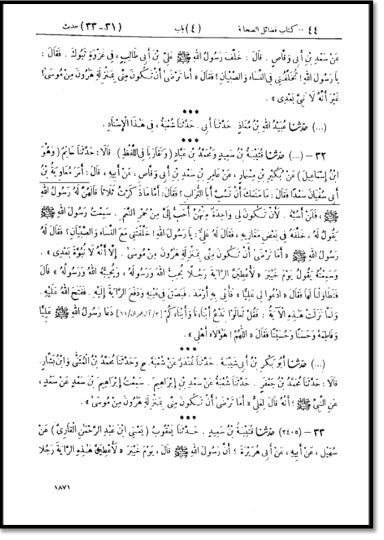 ٤٤ - كتاب فضائل الصحابة (٤) باب (٣١-٣٣) حديث
عَنْ سَعْدِ بْنِ أَبِي وَقَّاصٍ. قَالَ: خَلَّفَ رَسُولُ اللهِ ﷺ عَلِيَّ بْنَ أَبِي طَالِبٍ، فِي غَزْوَةِ تَبُوكَ. فَقَالَ:
يَا رَسُولَ اللهِ! تُخَلِّفُنِي فِي النِّسَاءِ وَالصِّبْيَانِ؟ فَقَالَ «أَمَا تَرْضَى أَنْ تَكُونَ مِنِّي بِمَنْزِلَةِ هَرُونَ مِنْ مُوسَى؟
غَيْرَ أَنَّهُ لَا نَبِيَّ بَعْدِي».
***
(...) حدثنا عُبَيْدُ اللهِ بْنُ مُعَاذٍ. حَدَّثَنَا أَبِي. حَدَّثَنَا شُعْبَةُ، فِي هَذَا الْإِسْنَادِ.
***
٣٢ - (...) حدثنا قُتَيْبَةُ بْنُ سَعِيدٍ وَمُحَمَّدُ بْنُ عَبَّادٍ (وَتَقَارَبَا فِي اللَّفْظِ) قَالَا: حَدَّثَنَا حَاتِمٌ (وَهُوَ
ابْنُ إِسْمَاعِيلَ) عَنْ بُكَيْرِ بْنِ مِسْمَارٍ، عَنْ عَامِرِ بْنِ سَعْدِ بْنِ أَبِي وَقَّاصٍ، عَنْ أَبِيهِ، قَالَ: أَمَرَ مُعَاوِيَةُ بْنُ
أَبِي سُفْيَانَ سَعْدًا فَقَالَ: مَا مَنَعَكَ أَنْ تَسُبَّ أَبَا التُّرَابِ؟ فَقَالَ: أَمَّا مَا ذَكَرْتُ ثَلَاثًا قَالَهُنَّ لَهُ رَسُولُ اللهِ
ﷺ، فَلَنْ أَسُبَّهُ. لَأَنْ تَكُونَ لِي وَاحِدَةٌ مِنْهُنَّ أَحَبُّ إِلَيَّ مِنْ حُمْرِ النَّعَمِ. سَمِعْتُ رَسُولَ اللهِ ﷺ
يَقُولُ لَهُ، خَلَّفَهُ فِي بَعْضِ مَغَازِيهِ، فَقَالَ لَهُ عَلِيٌّ: يَا رَسُولَ اللهِ! خَلَّفْتَنِي مَعَ النِّسَاءِ وَالصِّبْيَانِ؟ فَقَالَ لَهُ
رَسُولُ اللهِ ﷺ «أَمَا تَرْضَى أَنْ تَكُونَ مِنِّي بِمَنْزِلَةِ هَرُونَ مِنْ مُوسَى. إِلَّا أَنَّهُ لَا نُبُوَّةَ بَعْدِي».
وَسَمِعْتُهُ يَقُولُ يَوْمَ خَيْبَرَ «لَأُعْطِيَنَّ الرَّايَةَ رَجُلًا يُحِبُّ اللهَ وَرَسُولَهُ، وَيُحِبُّهُ اللهُ وَرَسُولُهُ» قَالَ
فَتَطَاوَلْنَا لَهَا فَقَالَ «ادْعُوا لِي عَلِيًّا» فَأُتِيَ بِهِ أَرْمَدَ. فَبَصَقَ فِي عَيْنِهِ وَدَفَعَ الرَّايَةَ إِلَيْهِ. فَفَتَحَ اللهُ عَلَيْهِ.
وَلَمَّا نَزَلَتْ هَذِهِ الْآيَةُ: فَقُلْ تَعَالَوْا نَدْعُ أَبْنَاءَنَا وَأَبْنَاءَكُمْ [٣/آل عمران/٦١] دَعَا رَسُولُ اللهِ ﷺ عَلِيًّا
وَفَاطِمَةَ وَحَسَنًا وَحُسَيْنًا فَقَالَ «اللَّهُمَّ! هَؤُلَاءِ أَهْلِي».
***
(...) حدثنا أَبُو بَكْرِ بْنُ أَبِي شَيْبَةَ. حَدَّثَنَا غُنْدَرٌ عَنْ شُعْبَةَ. ح وَحَدَّثَنَا مُحَمَّدُ بْنُ الْمُثَنَّى وَابْنُ بَشَّارٍ.
قَالَا: حَدَّثَنَا مُحَمَّدُ بْنُ جَعْفَرٍ. حَدَّثَنَا شُعْبَةُ عَنْ سَعْدِ بْنِ إِبْرَاهِيمَ. سَمِعْتُ إِبْرَاهِيمَ بْنَ سَعْدٍ عَنْ سَعْدٍ،
عَنِ النَّبِيِّ ﷺ؛ أَنَّهُ قَالَ لِعَلِيٍّ «أَمَا تَرْضَى أَنْ تَكُونَ مِنِّي بِمَنْزِلَةِ هَرُونَ مِنْ مُوسَى».
***
٣٣ - (٢٤٠٥) حدثنا قُتَيْبَةُ بْنُ سَعِيدٍ. حَدَّثَنَا يَعْقُوبُ (يَعْنِي ابْنَ عَبْدِ الرَّحْمَنِ الْقَارِيَّ) عَنْ
سُهَيْلٍ، عَنْ أَبِيهِ، عَنْ أَبِي هُرَيْرَةَ؛ أَنَّ رَسُولَ اللهِ ﷺ قَالَ، يَوْمَ خَيْبَرَ «لَأُعْطِيَنَّ هَذِهِ الرَّايَةَ رَجُلًا
١٨٧١